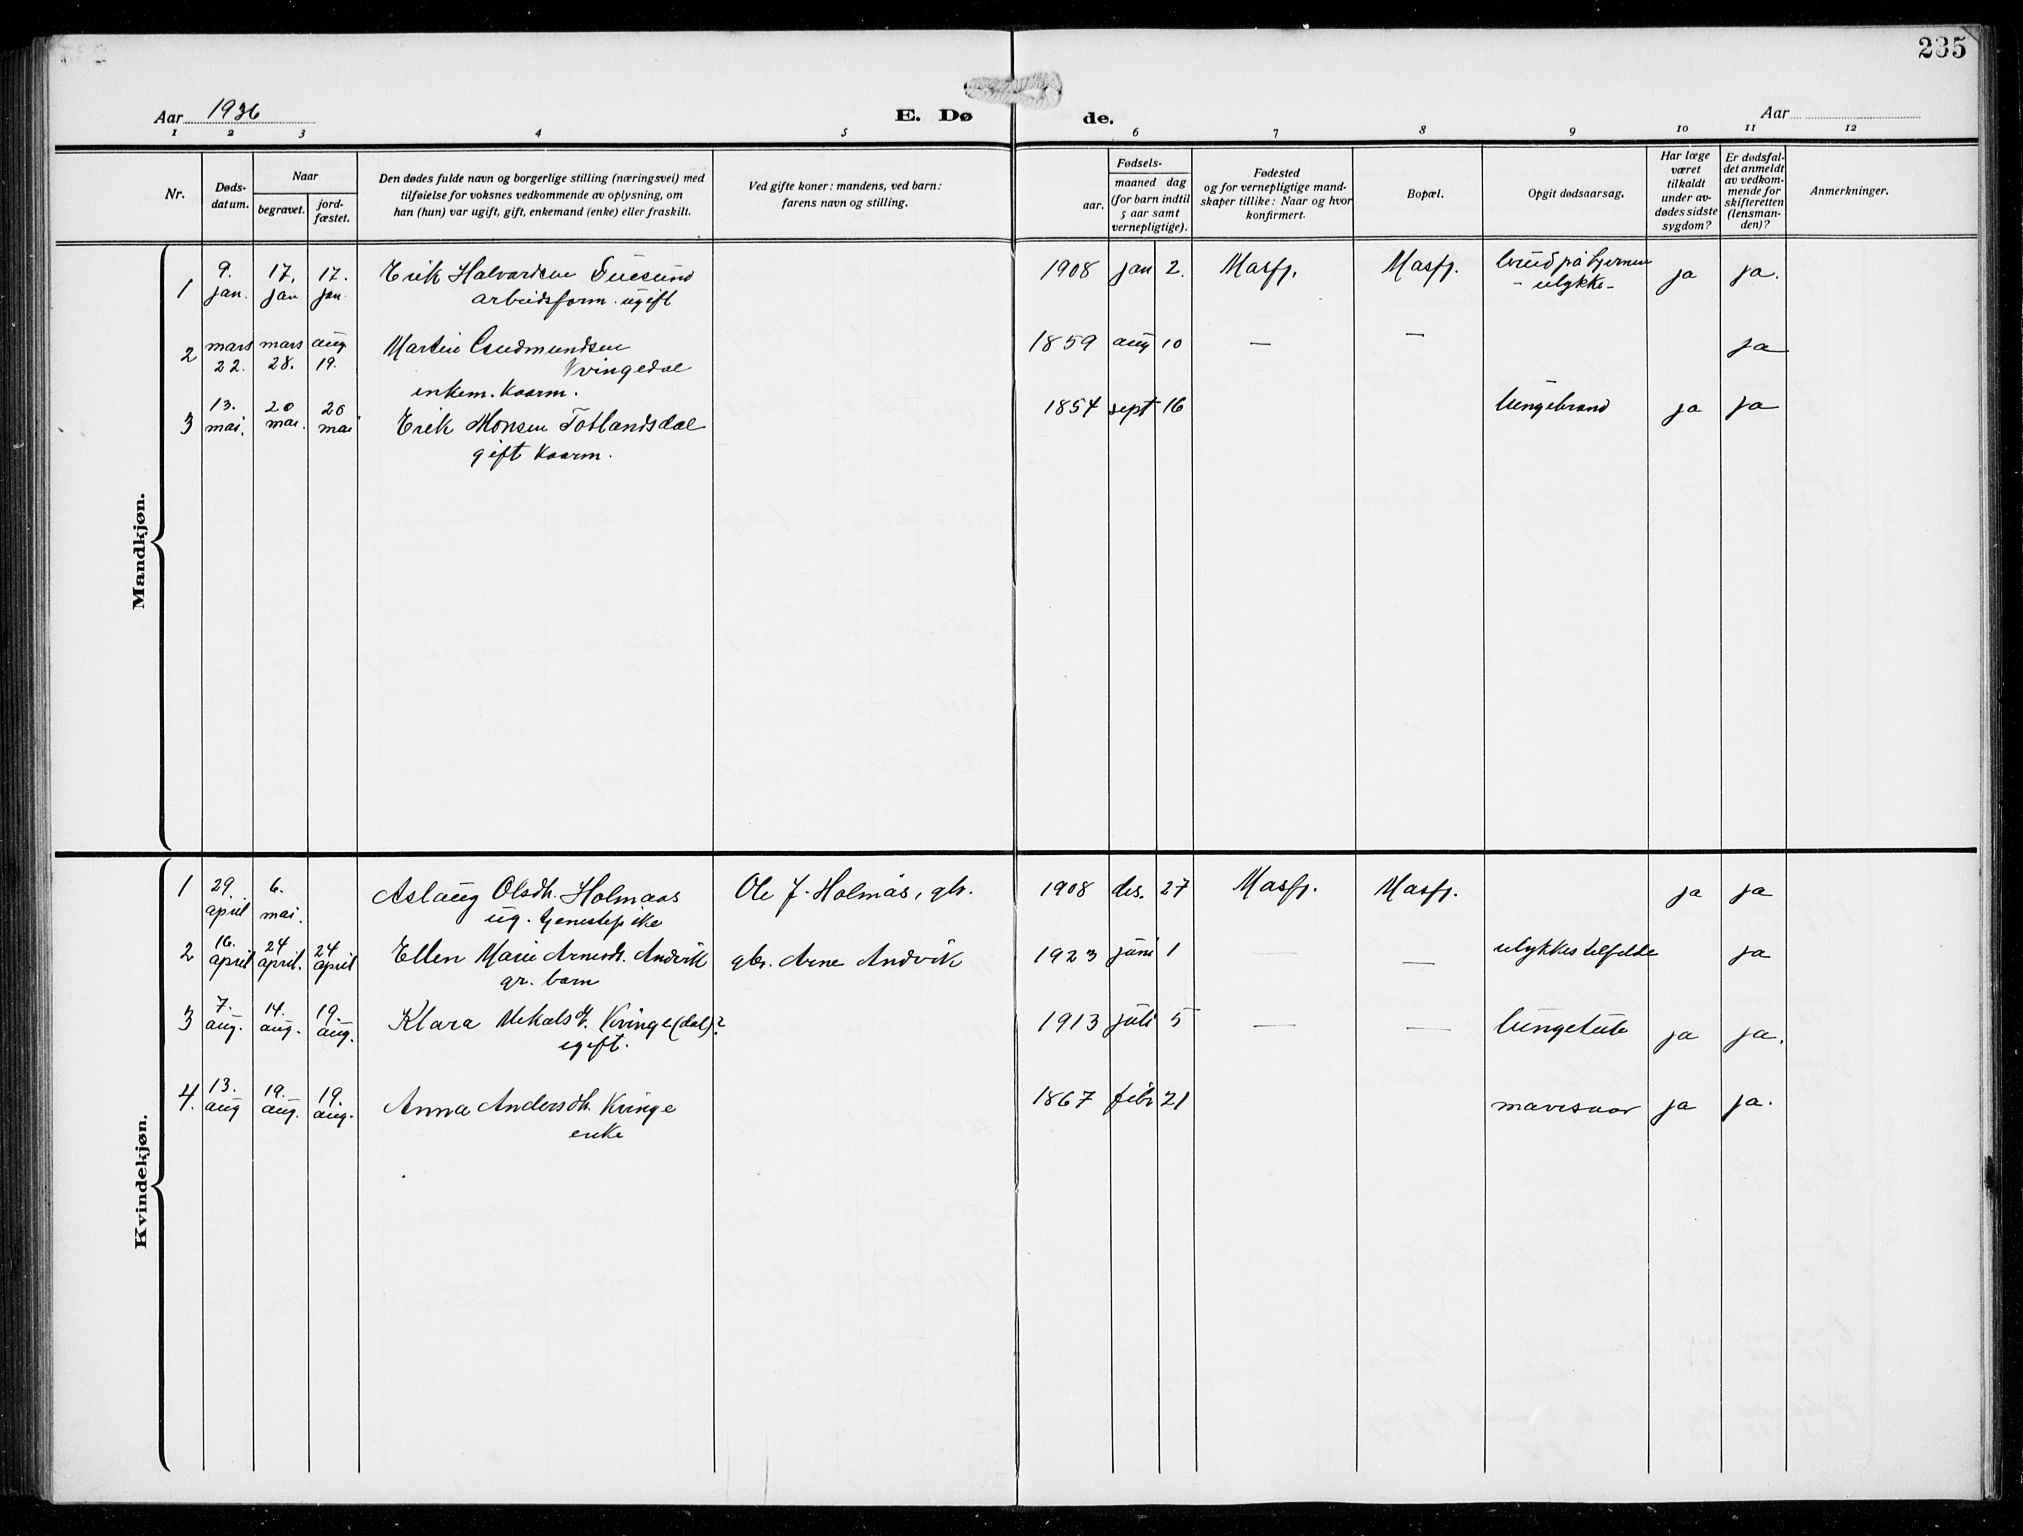 235
Aar 1936
E. Dø de.
Aar
1 2 3 4 5 6 7 8 9 10 11 12
Nr.
Døds-
datum.
Naar
begravet.
jord-
fæstet.
Den dødes fulde navn og borgerlige stilling (næringsvei) med
tilføielse for voksnes vedkommende av oplysning, om
han (hun) var ugift, gift, enkemand (enke) eller fraskilt.
Ved gifte koner: mandens, ved barn:
farens navn og stilling.
Fødsels-
aar.
maaned dag
(for barn indtil
5 aar samt
vernepligtige).
Fødested
og for vernepligtige mand-
skaper tillike: Naar og hvor
konfirmert.
Bopæl.
Opgit dødsaarsag.
Har læge
været
tilkaldt
under av-
dødes sidste
sygdom?
Er dødsfal-
det anmeldt
av vedkom-
mende for
skifteretten
(lensman-
den)?
Anmerkninger.
Mandkjøn.
1 9. jan. 17. jan 17. jan. Erik Halvardsen 1908 jan 2. Masfj. Masfj. brud på hjernen ja ja.
arbeidsform. ugift - ulykke -
2 mars 22. mars 28. aug 19. Martin Gudmundsen 1859 aug 10 — — ja
Kvingedal
enkem. kaarm.
3 13. mai. 20 mai. 20 mai Erik Monsen Totlandsdal 1854 sept 16 lungebrand ja ja
gift kaarm.
Kvindekjøn.
1 29 april 6. mai. Aslaug Olsdh. Holmaas Ole J. Holmås, gbr. 1908 des. 27 Masfj. Masfj. ja ja
ug. tjenestepike
2 16. april 24 april. 24 april Ellen Marie Arnesdh. Andvik gbr. Arne Andvik 1923 juni 1 — — ulykkestilfelde ja
gr. barn
3 7. aug. 14. aug. 19. aug. Klara Mikalsdh. Kvinge(dal)? 1913 juli 5 — — lungetub ja ja.
ugift.
4. 13. aug 19. aug. 19. aug. Anna Andersdh. Kvinge 1867 febr 21 mavesaar ja ja.
enke